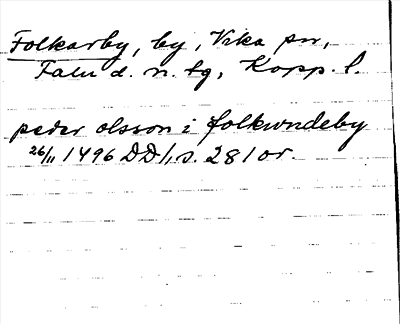 Folkarby, by, Vika sn,
Falu d. n. tg, Kopp. l.
peder olsson i folkundeby
26/11 1496 DD/1, s. 281 or.